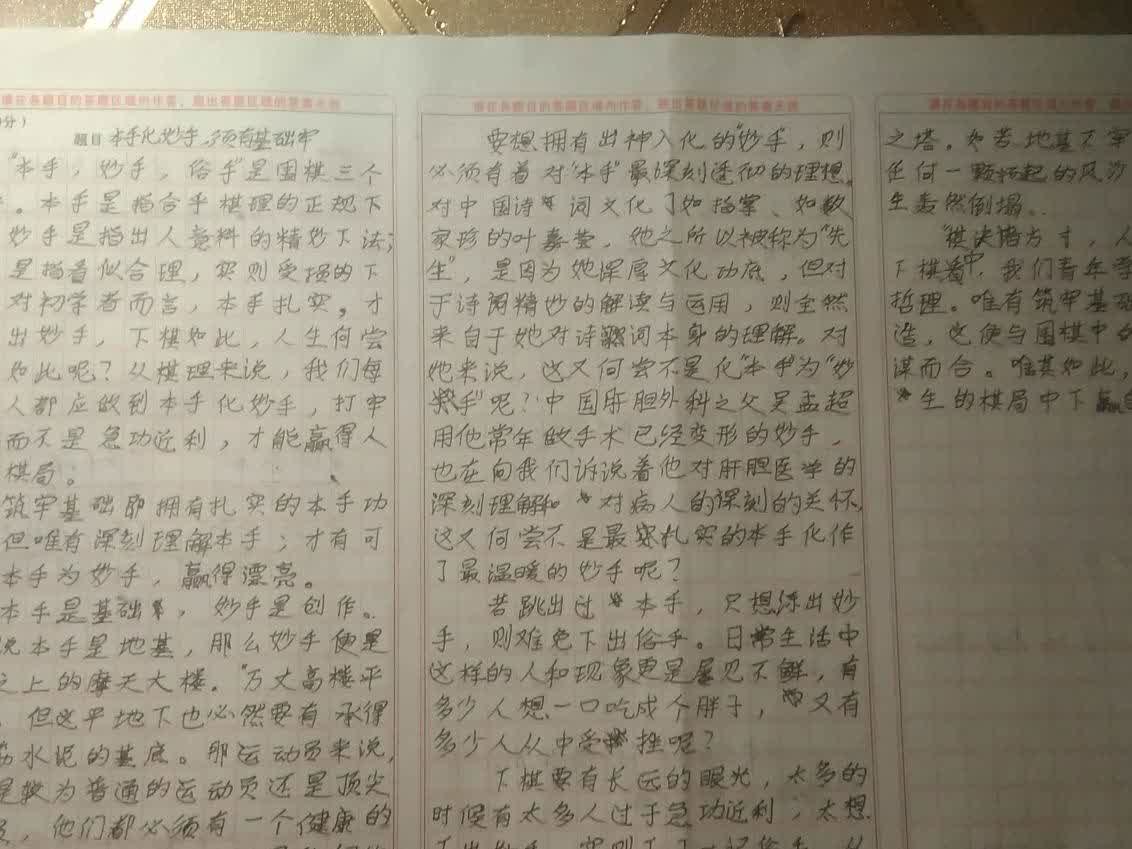 请在各题目的答题区域内作答，超出答题区域的答案无效
分）
题目 本手化妙手，须有基础牢
"本手，妙手，俗手"是围棋三个
。本手是指合乎棋理的正规下
妙手是指出人意料的精妙下法；
是指看似合理，实则受损的下
对初学者而言，本手扎实，才
出妙手，下棋如此，人生何尝
如此呢？从棋理来说，我们每
人都应做到本手化妙手，打牢
而不是急功近利，才能赢得人
棋局。
筑牢基础即拥有扎实的本手功
但唯有深刻理解本手；才有可
本手为妙手，赢得漂亮。
本手是基础，妙手是创作。
说本手是地基，那么妙手便是
之上的摩天大楼。"万丈高楼平
，但这平地下也必然要有承得
水泥的基底。那运动员来说，
是较为普通的运动员还是顶尖
，他们都必须有一个健康的
请在各题目的答题区域内作答，超出答题区域的答案无效
要想拥有出神入化的"妙手"，则
必须有着对"本手"最深刻透彻的理想。
对中国诗词文化了如指掌、如数
家珍的叶嘉莹，她之所以被称为"先
生"，是因为她深厚文化功底，但对
于诗词精妙的解读与运用，则全然
来自于她对诗词本身的理解。对
她来说，这又何尝不是化"本手"为"妙
手"呢？中国肝胆外科之父吴孟超
用他常年做手术已经变形的妙手，
也在向我们诉说着他对肝胆医学的
深刻理解和对病人的深刻的关怀，
这又何尝不是最扎实的本手化作
了最温暖的妙手呢？
若跳出过本手，只想练出妙
手，则难免下出俗手。日常生活中
这样的人和现象更是屡见不鲜，有
多少人想一口吃成个胖子，又有
多少人从中受挫呢？
下棋要有长远的眼光，太多的
时候有太多人过于急功近利，太想
请在各题目的答题区域内作答，超
之塔。如若地基不牢
任何一颗扬起的风沙
生轰然倒塌。
"棋决皆方寸，人
下棋中，我们青年学
哲理。唯有筑牢基础
造，这便与围棋中的
谋而合。唯其如此，
生的棋局中下赢自